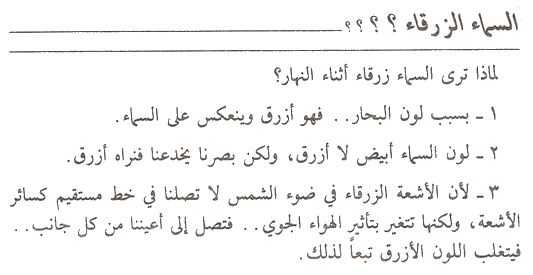 السماء الزرقاء ؟ ؟ ؟ ؟
لماذا ترى السماء زرقاء أثناء النهار؟
١ ـ بسبب لون البحار.. فهو أزرق وينعكس على السماء.
٢ ـ لون السماء أبيض لا أزرق، ولكن بصرنا يخدعنا فنراه أزرق.
٣ ـ لأن الأشعة الزرقاء في ضوء الشمس لا تصلنا في خط مستقيم كسائر
الأشعة، ولكنها تتغير بتأثير الهواء الجوي.. فتصل إلى أعيننا من كل جانب..
فيتغلب اللون الأزرق تبعاً لذلك.